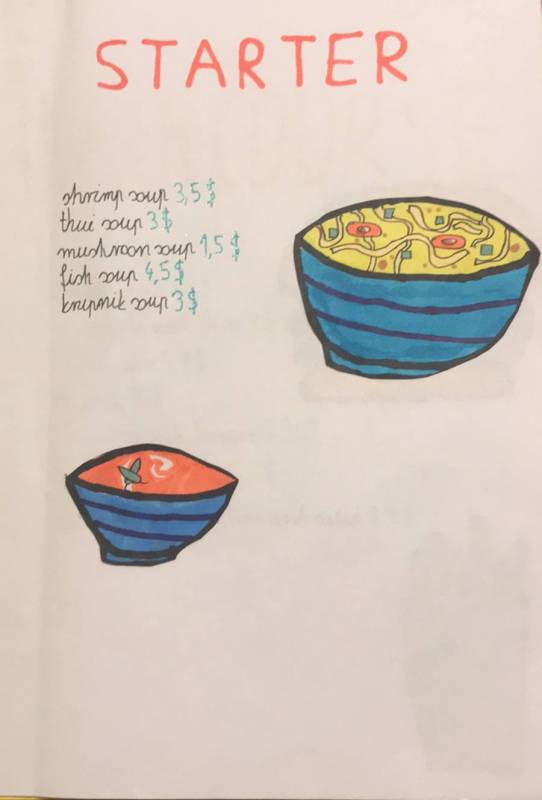 STARTER
shrimp soup 3,5 $
thai soup 3 $
mushroon soup 1,5 $
fish soup 4,5 $
krupnik soup 3 $